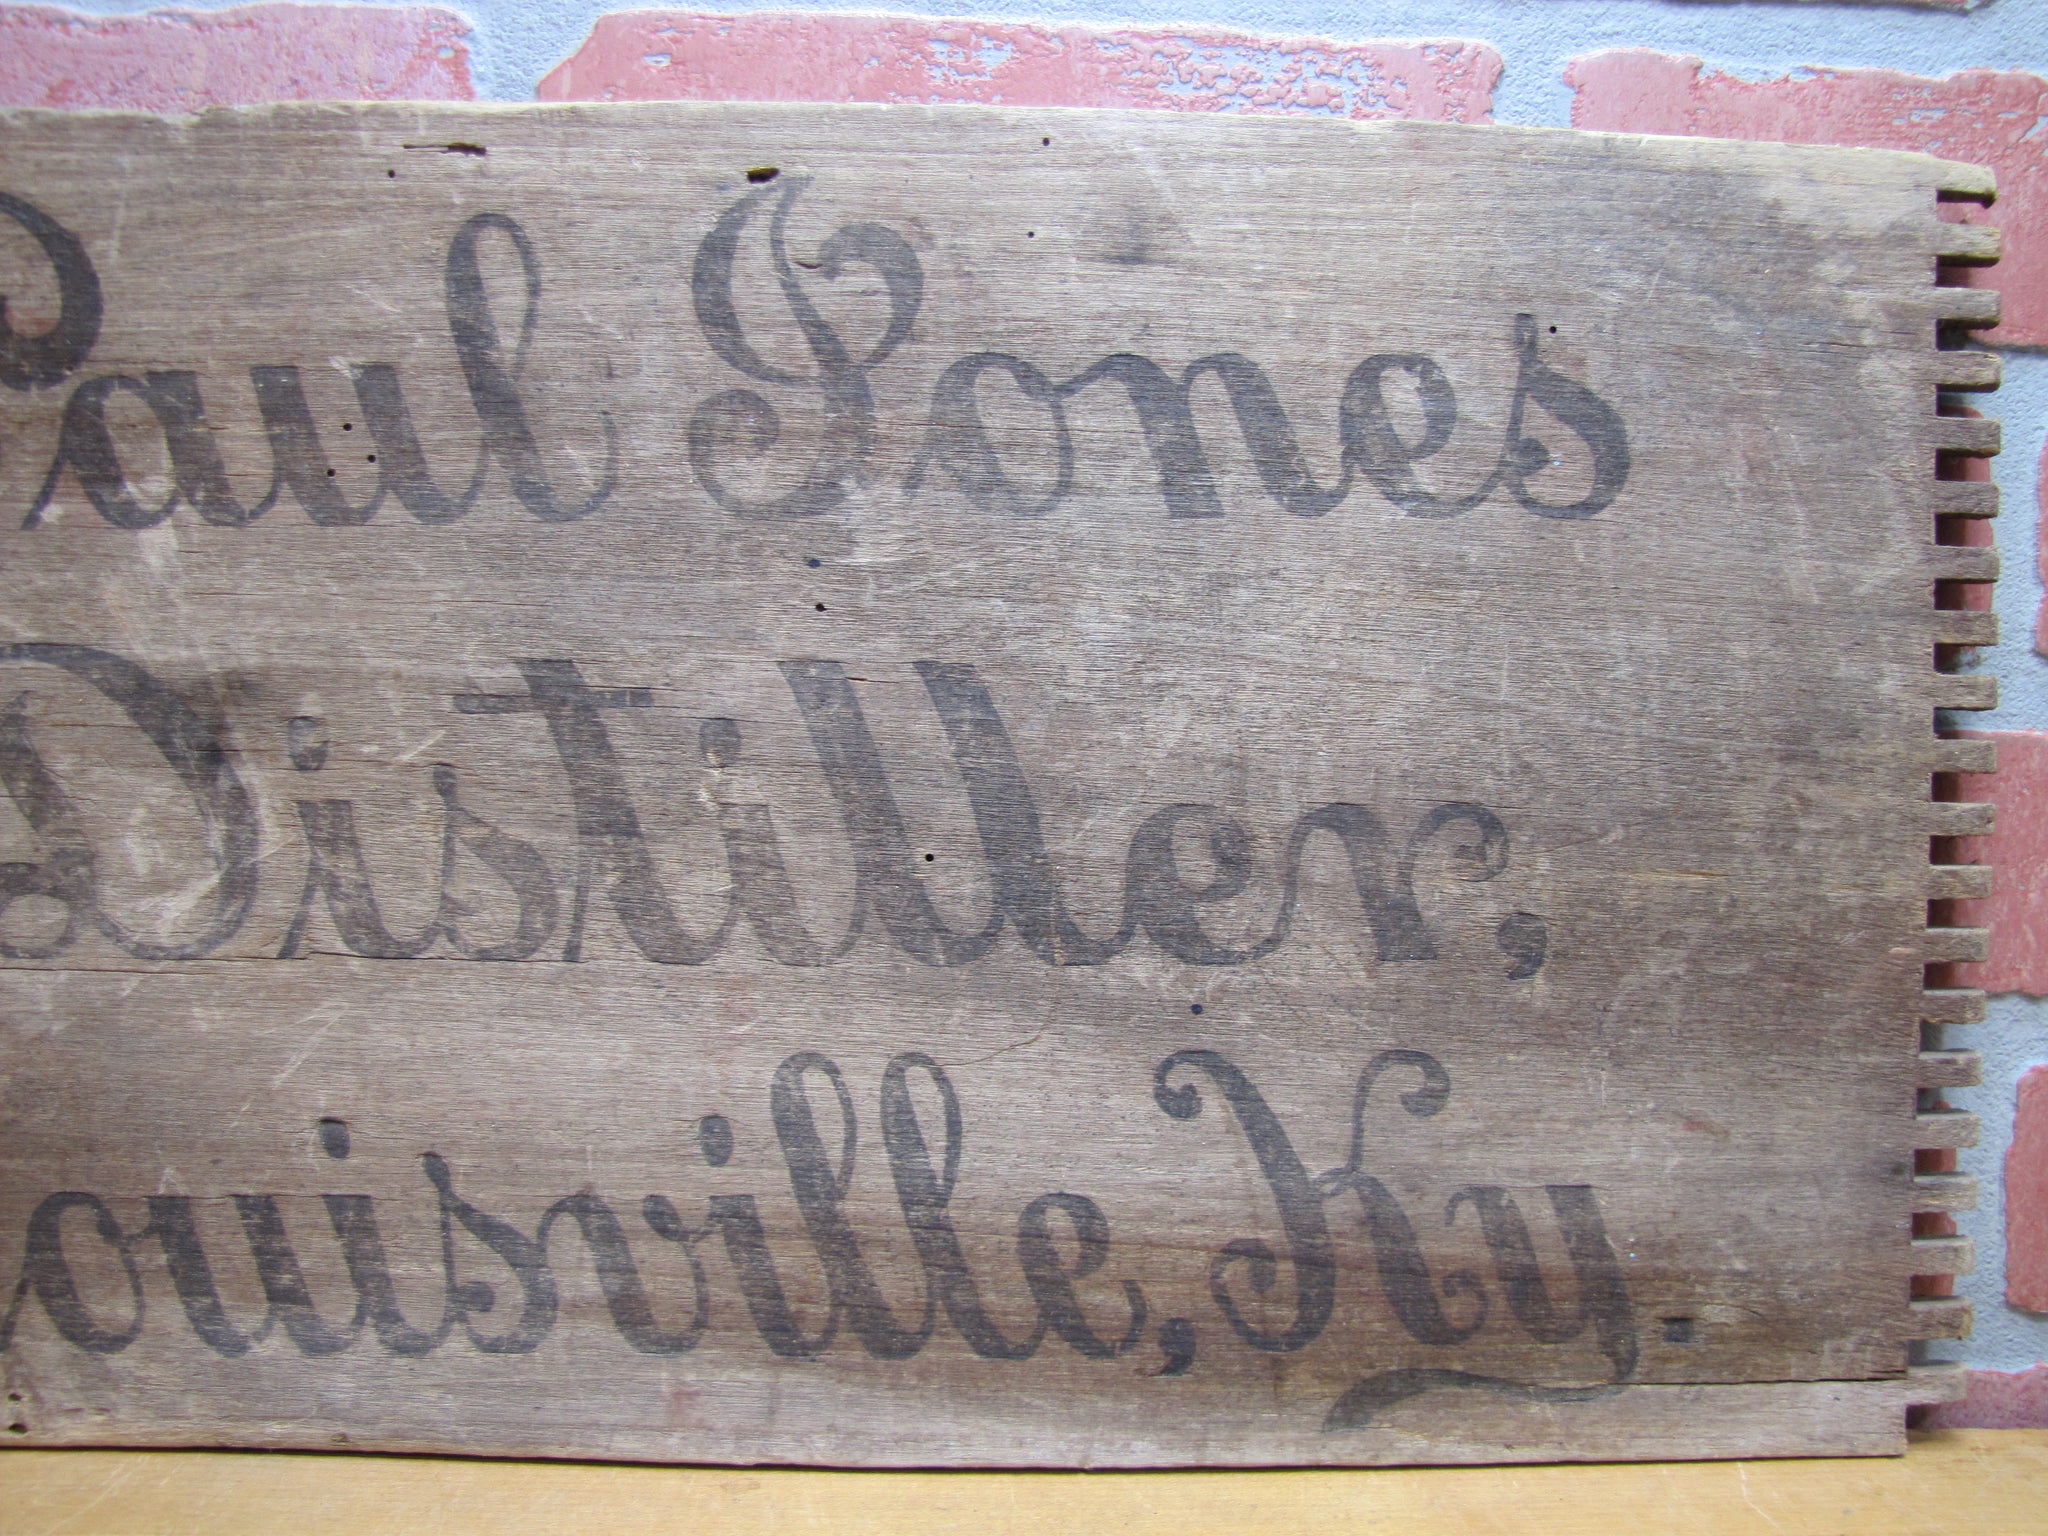 Paul Jones
Distiller,
ouisville, Ky.